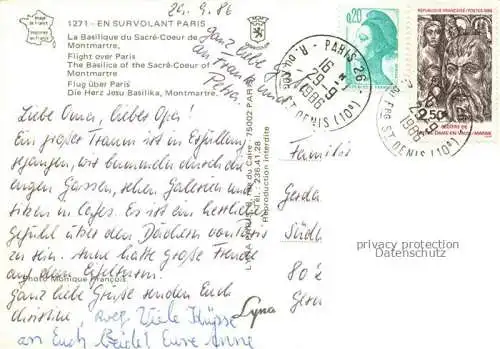 29.9.86
1271 - EN SURVOLANT PARIS
La Basilique du Sacré-Coeur de
Montmartre,
Flight over Paris
The Basilica of the Sacré-Coeur of
Montmartre
Flug über Paris
Die Herz Jesu Basilika, Montmartre.
ganz liebe
an Frank und
Petra,
Liebe Oma, lieber Opa!
Ein großer Traum ist in Erfüllung
gegangen, wir bummeln durch die
engen Gassen, sehen Galerien und
sitzen in Cafes. Es ist ein herrliches
Gefühl über den Dächern von Paris
zu sein. Anne hatte große Freude
an dem Eiffelturm.
Photo Monique François
Ganz liebe Grüße senden Euch
Christine,
Viele Küsse
an Euch beide! Eure Anne
Lyna
75002 PARIS
Tél.: 236.41.28
Reproduction interdite
0,20
PARIS 26
16 H
29-9
1986
ST DENIS (10e)
2,50
1986
ST DENIS (10e)
Familie
privacy protection
Datenschutz